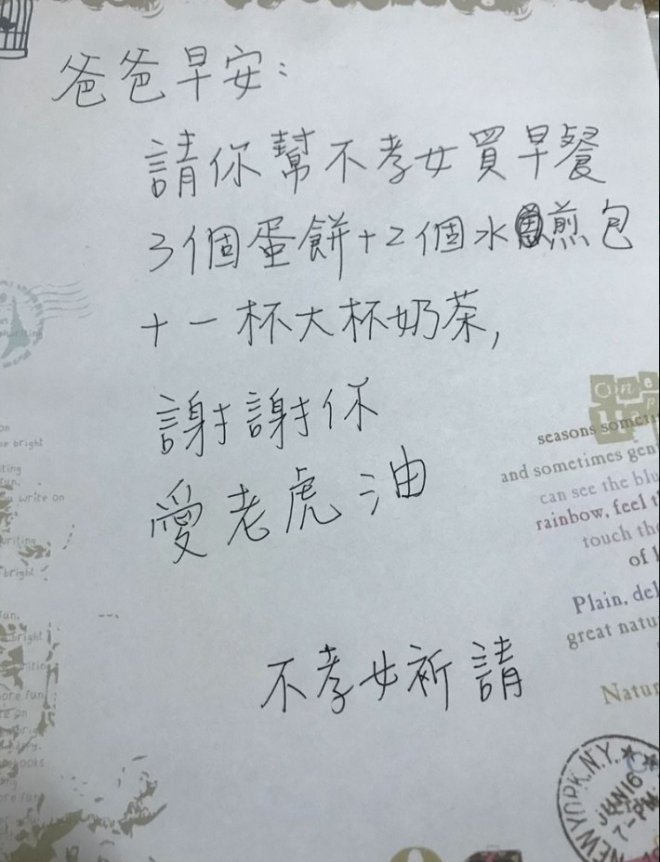 爸爸早安：
請你幫不孝女買早餐
3個蛋餅+2個水煎包
+一杯大杯奶茶,
謝謝你
愛老虎油
不孝女祈請
One
seasons someti
and sometimes gen
can see the blu
rainbow, feel t
touch th
of l
Plain, del
great natu
Natur
NEW YORK, N.Y.
JUN 16
7-PM
bright
write on
writing
bright
fun.
bright
more fun
books